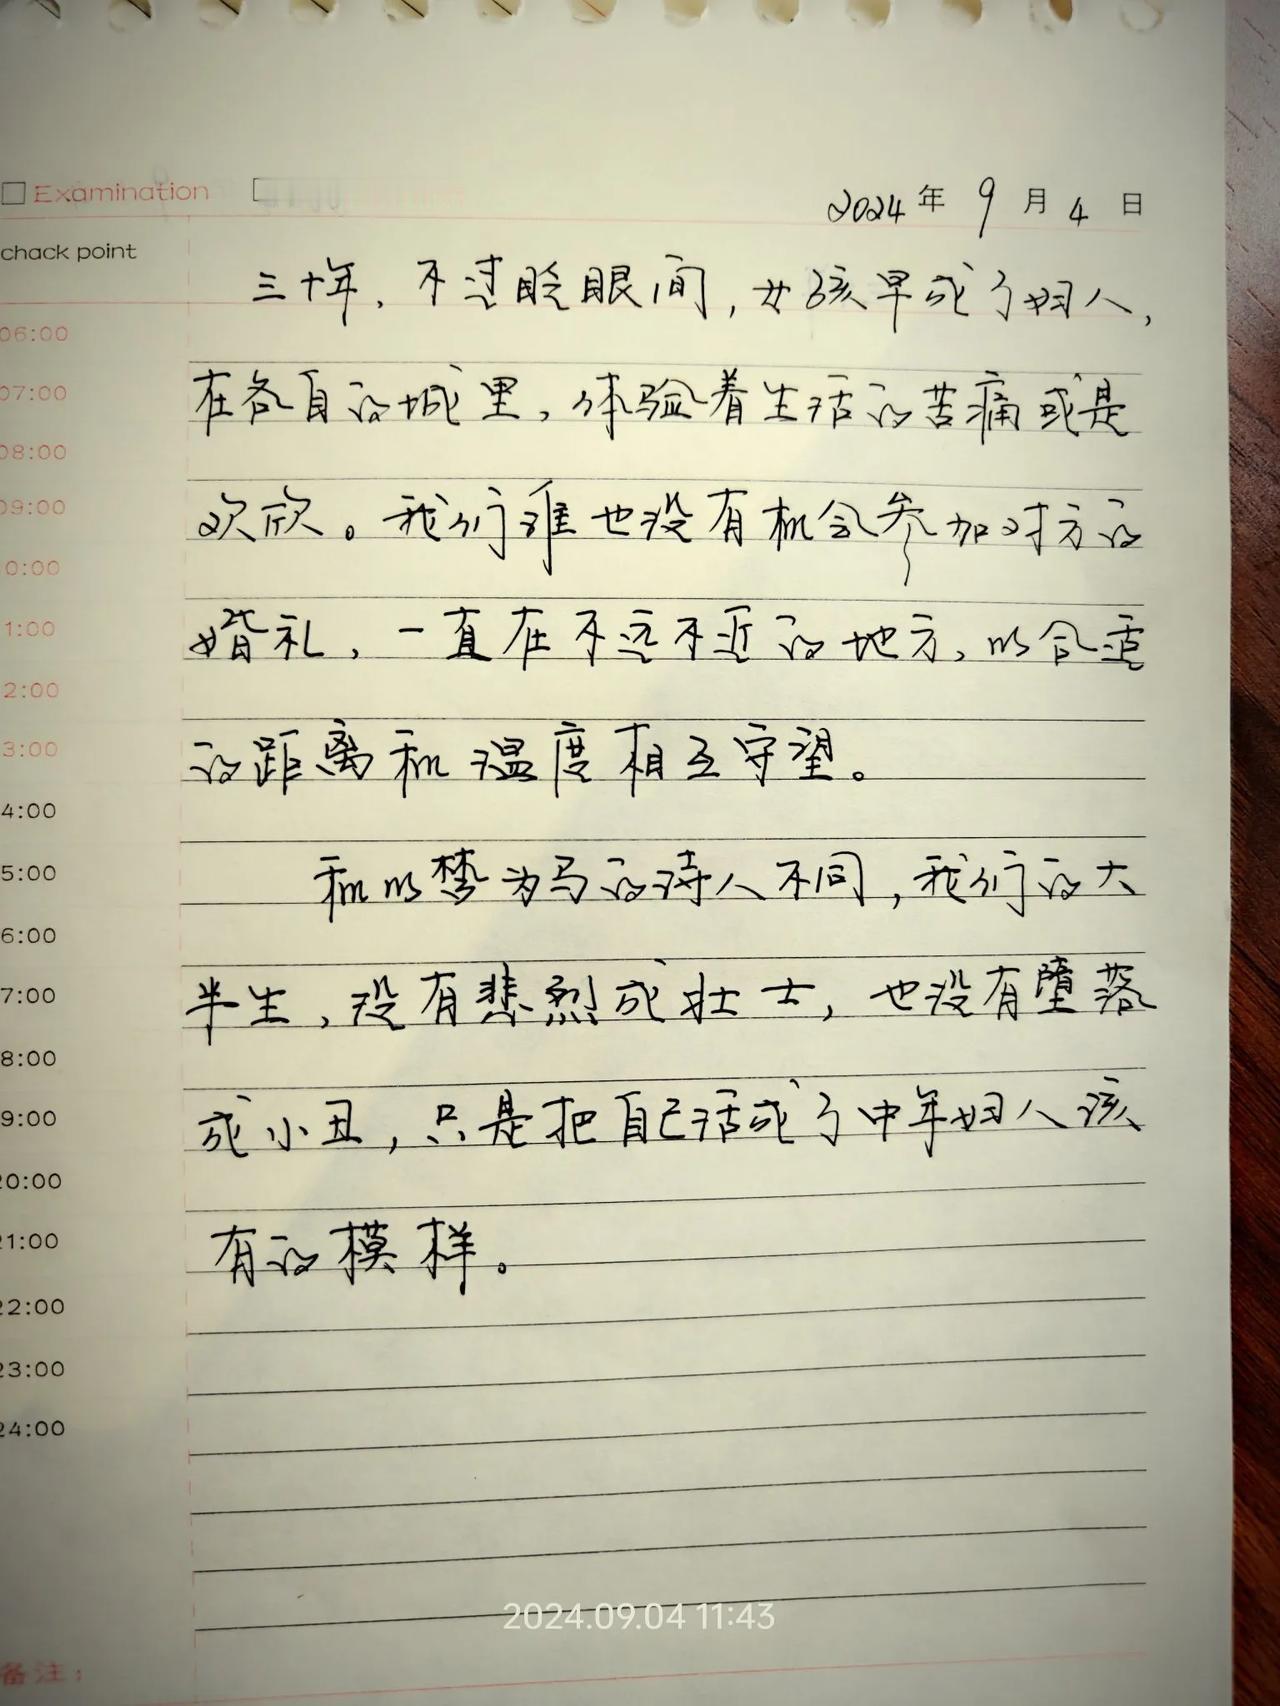 Examination
2024年9月4日
chack point
三十年，不过眨眼间，女孩早成了妇人，
06:00
在各自的城里，体验着生活的苦痛或是
07:00
08:00
欢欣。我们谁也没有机会参加对方的
09:00
0:00
婚礼，一直在不远不近的地方，以合适
1:00
2:00
的距离和温度相互守望。
3:00
4:00
和以梦为马的诗人不同，我们的大
5:00
6:00
半生，没有悲烈成壮士，也没有堕落
7:00
8:00
成小丑，只是把自己活成了中年妇人该
9:00
20:00
有的模样。
21:00
22:00
23:00
24:00
2024.09.04 11:43
备注：